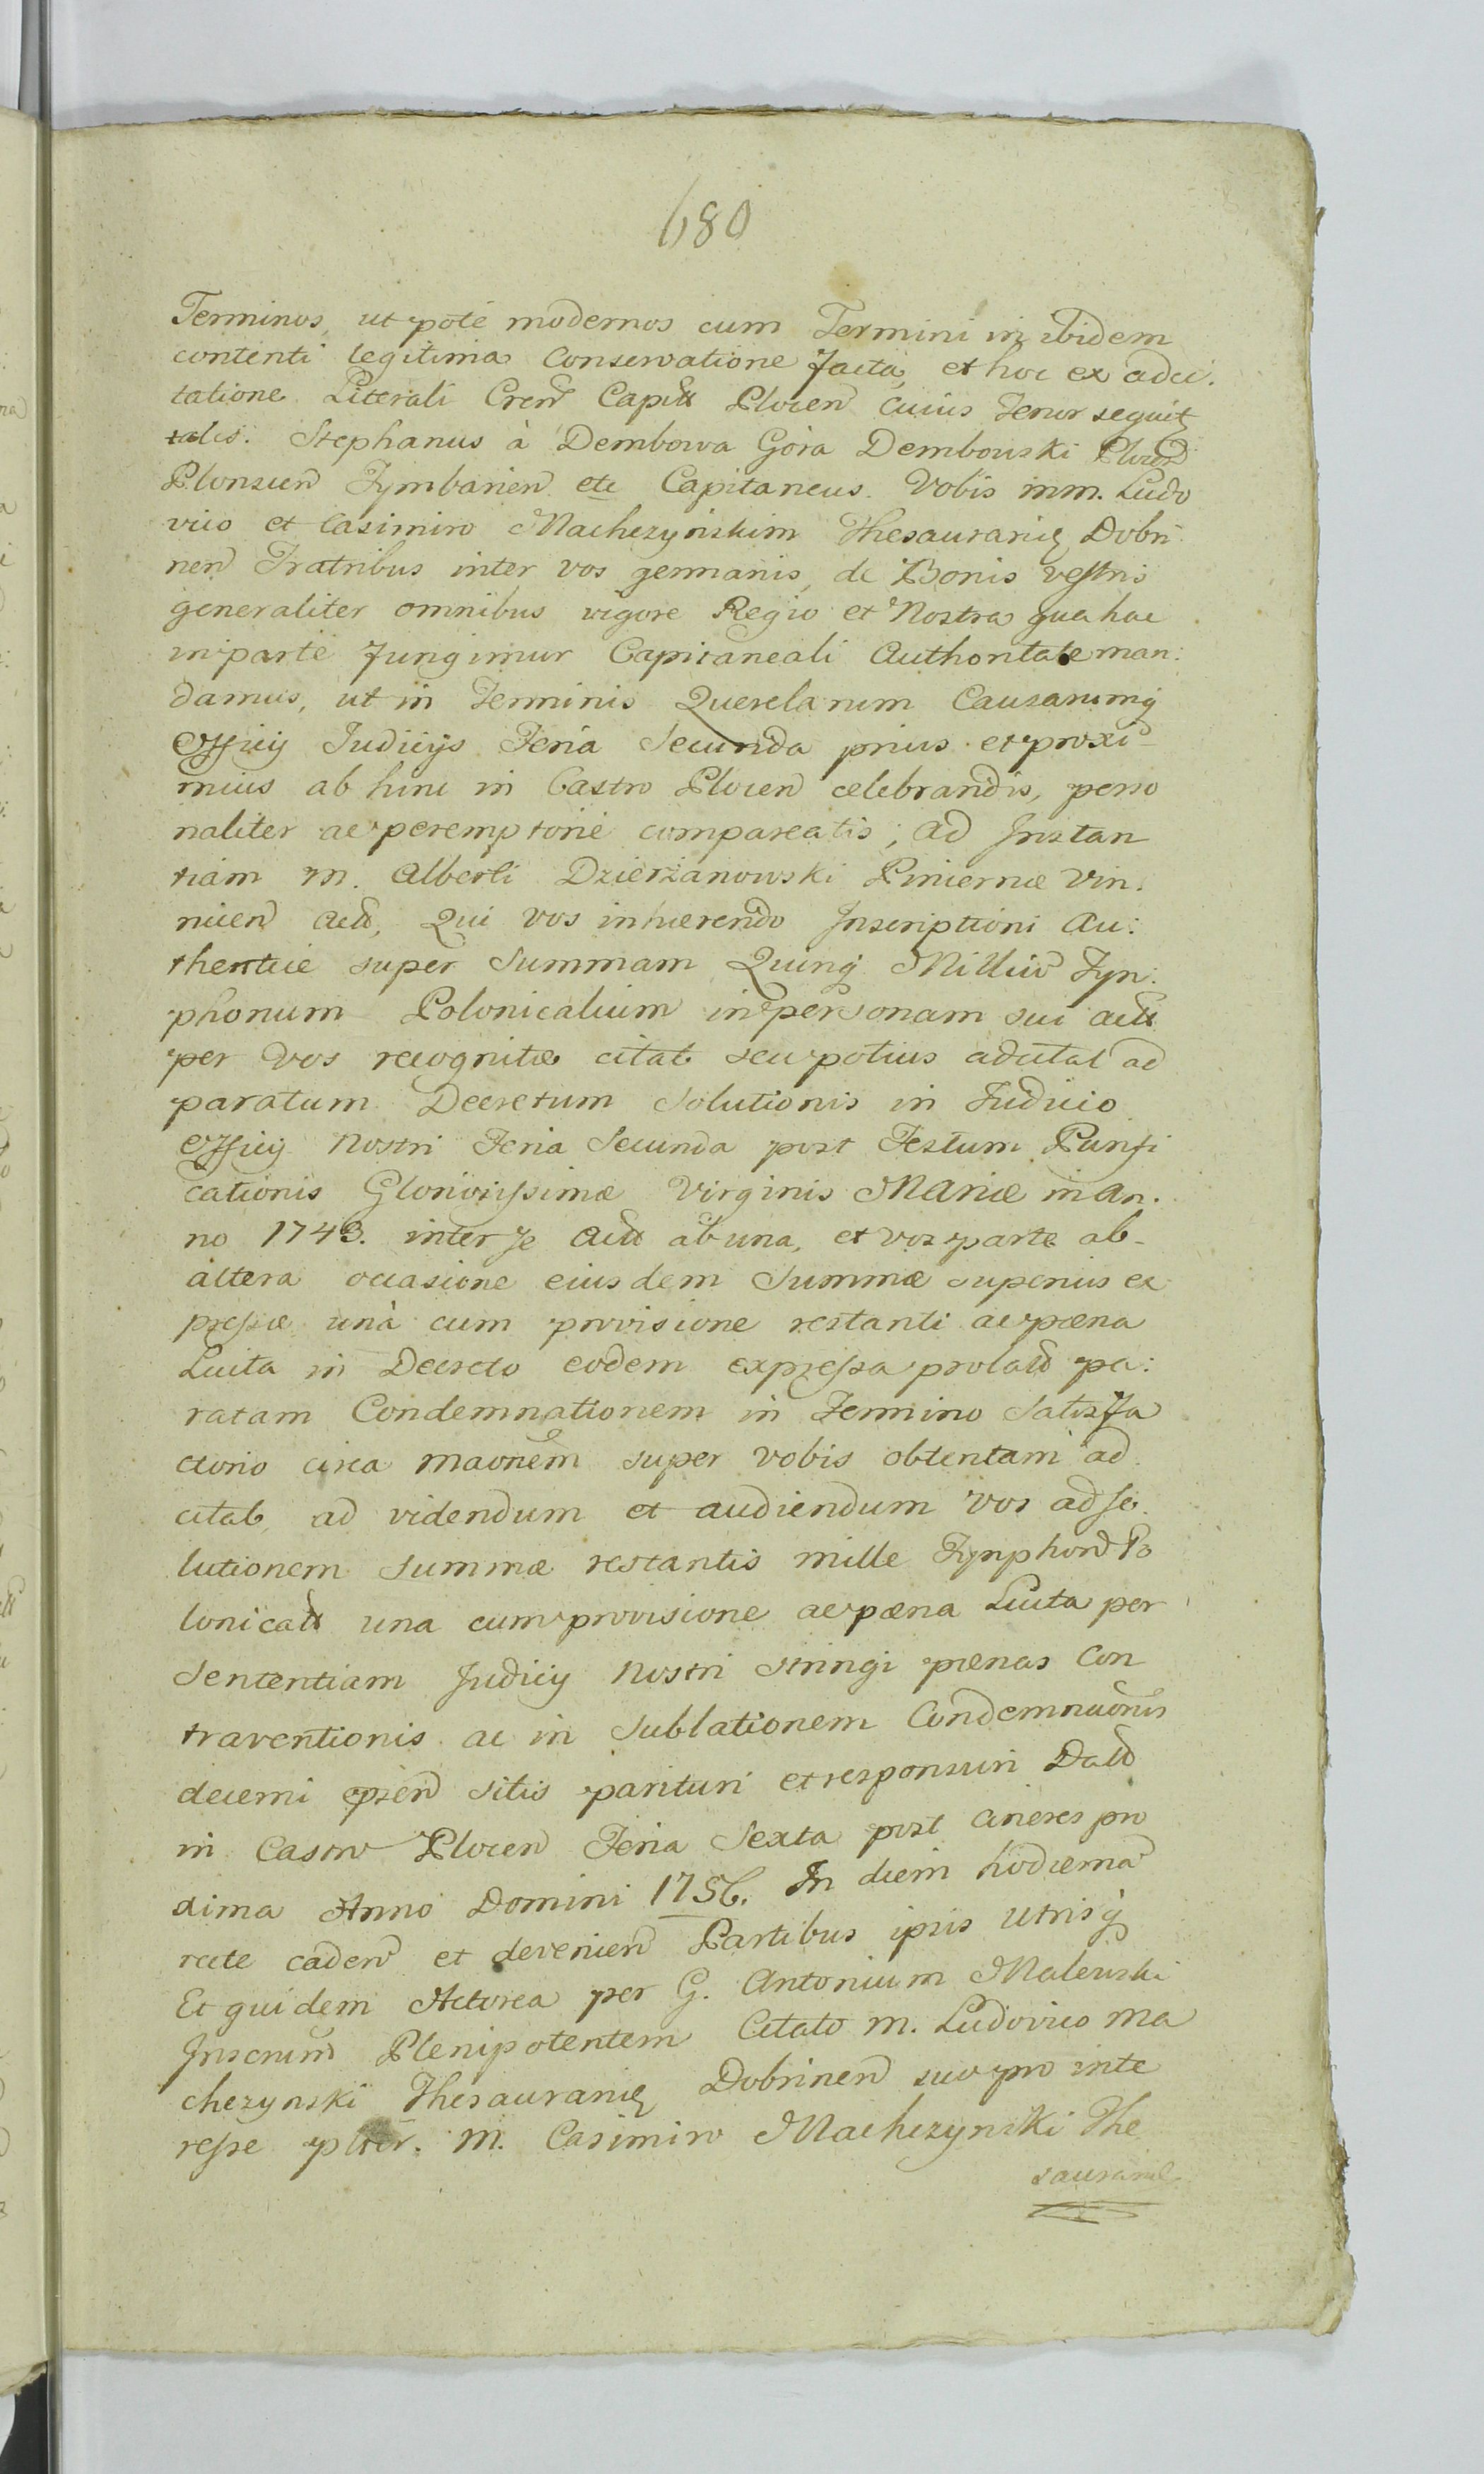 680
Terminos, ut poté modernos cum Termini in ibidem
contenti legitima Conservatione facta, et hoc ex adci.
tatione Literali Cren Capitt Plocen cuius Tenor seguit
talis. Stephanus à Dembowa Góra Dembowski Plocen
Plonscen Tymbarien etc Capitaneus. Vobis mm. Ludo
vico et Casimiro Machczyńskim Thesaurarię Dobri
nen Fratribus inter vos germanis, de Bonis vestris
generaliter omnibus vigore Regio et Nostra qua hac
in parte fungimur Capitaneali Authoritate man:
damus, ut in Terminis Querelarum Causarumq
Officij Judicijs Feria Secunda prius et proxi-
mius ab hinc in Castro Plocen celebrandis, perso
naliter ac peremptorie compareatis; ad Instan
tiam M. Alberti Dzierżanowski Pincernæ Vin:
nicen Actt, Qui vos inhærendo Inscriptioni Au:
thenticæ super Summam Quinq Milliu Tyn:
phonum Polonicalium in personam sui actt
per vos recognitæ citat seu potius adcitat ad
paratum Decretum Solutionis in Judicio
Officij Nostri Feria Secunda post Festum Purifi
cationis Gloriosissimæ Virginis Mariæ in An.
no 1743. inter se Actt ab una, et vos parte ab-
altera occasione eiusdem Summæ superius ex
pressæ unà cum provisione restanti ac pæna
Luita in Decreto eodem expressa prolatt pa:
ratam Condemnationem in Termino Satisfa
ctorio circa maonem super vobis obtentam ad
citat, ad videndum et audiendum vos ad so
lutionem Summæ restantis mille Tynphon Po
lonicatt una cum provisione ac pæna Luita per
Sententiam Judicij Nostri stringi pænas Con
traventionis ac in Sublationem Condemnaonis
decerni sitis parituri et responsuri Datt
in Castro Plocen Feria Sexta post Cineres pro
xima Anno Domini 1756. In diem hodierna
recte caden et devenien Partibus ipsis Utrisq
Et quidem Actorea per G. Antonium Malewski
Inscrium Plenipotentem Citato M. Ludovico Ma
chczynski Thesaurarię Dobrinen suo pro inte
resse M. Casimiro Machczynski The
saurarię